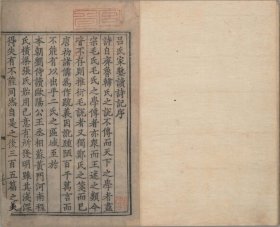 呂氏家塾讀詩記序
詩自齊魯韓氏之說不傳而天下之學者盡
宗毛氏毛氏之學傳者亦衆而王述之類今
皆不存則推衍毛說者又獨鄭氏之箋而已
唐初諸儒為作疏義因訛踵陋百千萬言而
不能有以出乎二氏之區域至於
本朝劉侍讀歐陽公王丞相蘇黃門河南程
氏橫渠張氏始用己意有所發明雖其淺深
得失有不能同然自是之後三百五篇之